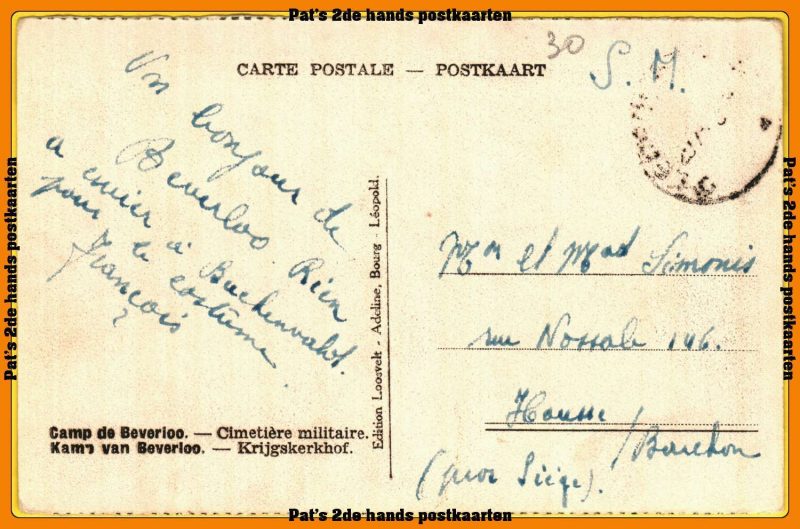 Pat's 2de hands postkaarten
30
CARTE POSTALE — POSTKAART
S. M.
Un bonjour de
Beverloo. Rien
a envier à Buchenwald.
pour le costume.
François
?
Camp de Beverloo. — Cimetière militaire.
Kamp van Beverloo. — Krijgskerkhof.
Edition Loosvelt - Adeline, Bourg - Léopold.
Mr et Mad Simonis
rue Nossale 146.
Housse
/Barchon
(près Liège).
Pat's 2de hands postkaarten
Pat's 2de hands postkaarten
Pat's 2de hands postkaarten